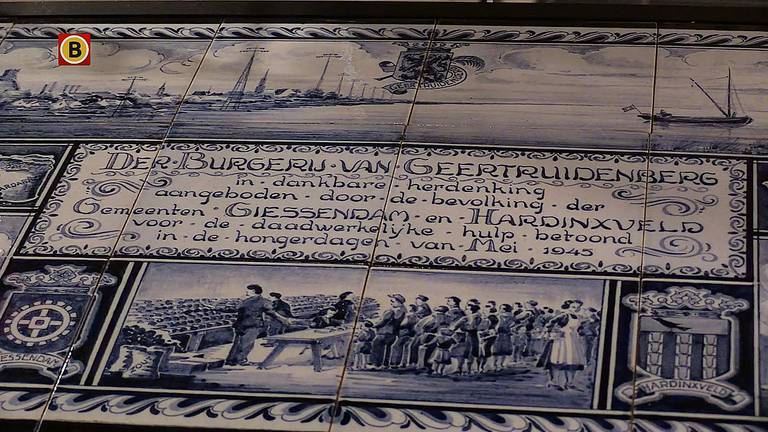 B
GEERTRUIDENBERG
DER·BURGERIJ·VAN GEERTRUIDENBERG
in·dankbare·herdenking
aangeboden·door·de·bevolking·der
Gemeenten·GIESSENDAM·en·HARDINXVELD
voor·de·daadwerkelyke·hulp·betoond
in·de·hongerdagen·van·Mei 1945
GIESSENDAM
HARDINXVELD